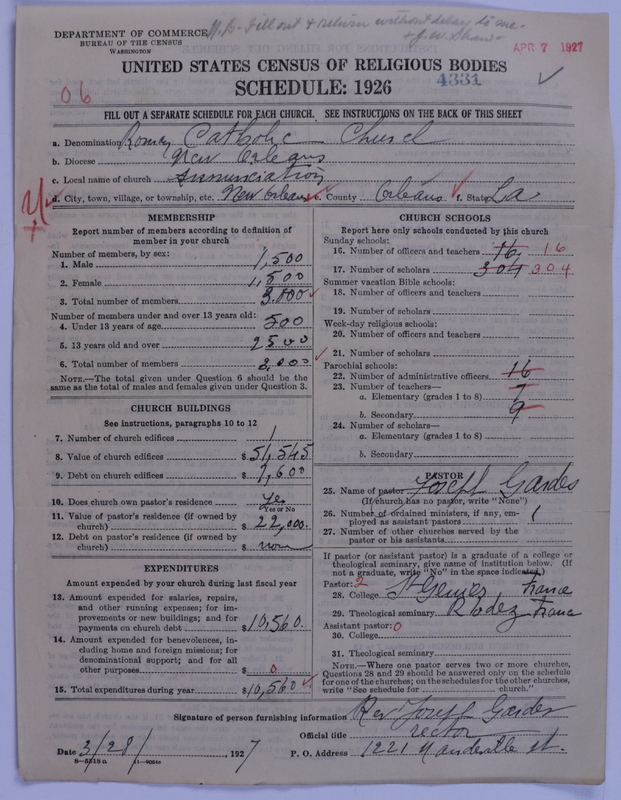 N.B. Fill out & return without delay to me.
+ J. W. Shaw -
DEPARTMENT OF COMMERCE
BUREAU OF THE CENSUS
WASHINGTON
APR 7 1927
UNITED STATES CENSUS OF RELIGIOUS BODIES
4331
SCHEDULE: 1926
06
FILL OUT A SEPARATE SCHEDULE FOR EACH CHURCH. SEE INSTRUCTIONS ON THE BACK OF THIS SHEET
a. Denomination Roman Catholic Church
b. Diocese New Orleans
c. Local name of church Annunciation
d. City, town, village, or township, etc. New Orleans e. County Orleans f. State La
MEMBERSHIP
Report number of members according to definition of
member in your church
Number of members, by sex:
1. Male 1,500
2. Female 1,500
3. Total number of members 3.000
Number of members under and over 13 years old:
4. Under 13 years of age 500
5. 13 years old and over 2500
6. Total number of members 3,000
NOTE.—The total given under Question 6 should be
the same as the total of males and females given under Question 3.
CHURCH BUILDINGS
See instructions, paragraphs 10 to 12
7. Number of church edifices 1
8. Value of church edifices $51,545
9. Debt on church edifices $7,600
10. Does church own pastor's residence Yes
Yes or No
11. Value of pastor's residence (if owned by
church) $22,000.
12. Debt on pastor's residence (if owned by
church) $ none
EXPENDITURES
Amount expended by your church during last fiscal year
13. Amount expended for salaries, repairs,
and other running expenses; for im-
provements or new buildings; and for
payments on church debt $10,560.
14. Amount expended for benevolences, in-
cluding home and foreign missions; for
denominational support; and for all
other purposes $ 0
15. Total expenditures during year $10,560
CHURCH SCHOOLS
Report here only schools conducted by this church
Sunday schools:
16. Number of officers and teachers 16 16
17. Number of scholars 304 304
Summer vacation Bible schools:
18. Number of officers and teachers
19. Number of scholars
Week-day religious schools:
20. Number of officers and teachers
21. Number of scholars
Parochial schools:
22. Number of administrative officers 16
23. Number of teachers—
a. Elementary (grades 1 to 8) 7
b. Secondary 9
24. Number of scholars—
a. Elementary (grades 1 to 8)
b. Secondary
PASTOR
25. Name of pastor Joseph Gardes
(If church has no pastor, write "None")
26. Number of ordained ministers, if any, em-
ployed as assistant pastors 1
27. Number of other churches served by the
pastor or his assistants
If pastor (or assistant pastor) is a graduate of a college or
theological seminary, give name of institution below. (If
not a graduate, write "No" in the space indicated.)
Pastor: 2
28. College St Geniez, France
29. Theological seminary Rodez France
Assistant pastor: 0
30. College
31. Theological seminary
NOTE.—Where one pastor serves two or more churches,
Questions 28 and 29 should be answered only on the schedule
for one of the churches; on the schedules for the other churches,
write "See schedule for church."
Signature of person furnishing information Rev Joseph Gardes
Official title rector
Date 3/28/ 1927 P. O. Address 1221 Mandeville St.